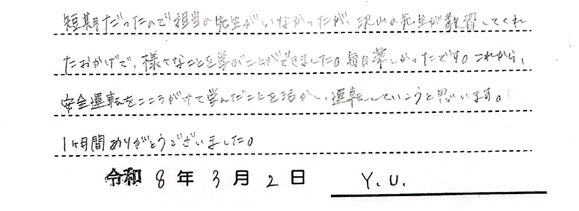 短期だったので担当の先生がいなかったが、沢山の先生が教習してくれ
たおかげで、様々なことを学ぶことができました。毎日楽しかったです。これから、
安全運転をこころがけて学んだことを活かし、運転していこうと思います。
1ヶ月間ありがとうございました。
令和 8 年 3 月 2 日 Y.U.